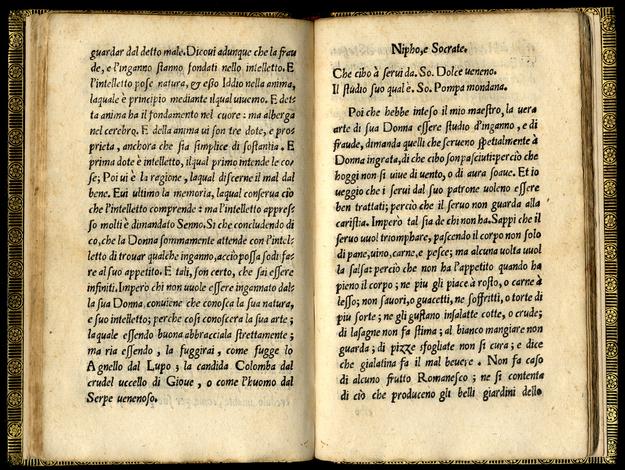 guardar dal detto male. Dicoui adunque che la frau
de, e l'inganno stanno fondati nello intelletto. E
l'intelletto pose natura, & esso Iddio nella anima,
laquale è principio mediante ilqual uiuemo. E det-
ta anima ha il fondamento nel cuore: ma alberga
nel cerebro. E della anima ui son tre dote, e pro-
prieta, anchora che sia simplice di sostantia. E
prima dote è intelletto, ilqual primo intende le co-
se; Poi ui è la ragione, laqual discerne il mal dal
bene. Eui ultimo la memoria, laqual conserua cio
che l'intelletto comprende: ma l'intelletto appres-
so molti è dimandato Senno. Si che concludendo di
co, che la Donna sommamente attende con l'intel-
letto di trouar qualche inganno, accio possa sodisfa-
re al suo appetito. E tali, son certo, che sai essere
infiniti. Impero chi non uuole essere ingannato dal-
la sua Donna, conuiene che conosca la sua natura,
e suo intelletto; perche cosi conoscera la sua arte;
laquale essendo buona abbracciala strettamente;
ma ria essendo, la fuggirai, come fugge lo
Agnello dal Lupo; la candida Colomba dal
crudel uccello di Gioue, o come l'huomo dal
Serpe uenenoso.
Nipho, e Socrate.
Che cibo à serui da. So. Dolce ueneno.
Il studio suo qual è. So. Pompa mondana.
Poi che hebbe inteso il mio maestro, la uera
arte di sua Donna essere studio d'inganno, e di
fraude, dimanda quelli che serueno spetialmente à
Donna ingrata, di che cibo son pasciuti: perciò che
hoggi non si uiue di uento, o di aura soaue. Et io
ueggio che i serui dal suo patrone uoleno essere
ben trattati; perciò che il seruo non guarda alla
caristia. Imperò tal sia de chi non ha. Sappi che il
seruo uuol triomphare, pascendo il corpo non solo
di pane, uino, carne, e pesce; ma alcuna uolta uuol
la salsa: perciò che non ha l'appetito quando ha
pieno il corpo; ne piu gli piace à rosto, o carne à
lesso; non sauori, o guacetti, ne soffritti, o torte di
piu sorte; ne gli gustano insalatte cotte, o crude;
di lasagne non fa stima; al bianco mangiare non
guarda; di pizze sfogliate non si cura; e dice
che gialatina fa il mal beuere. Non fa caso
di alcuno frutto Romanesco; ne si contenta
di ciò che produceno gli belli giardini dello